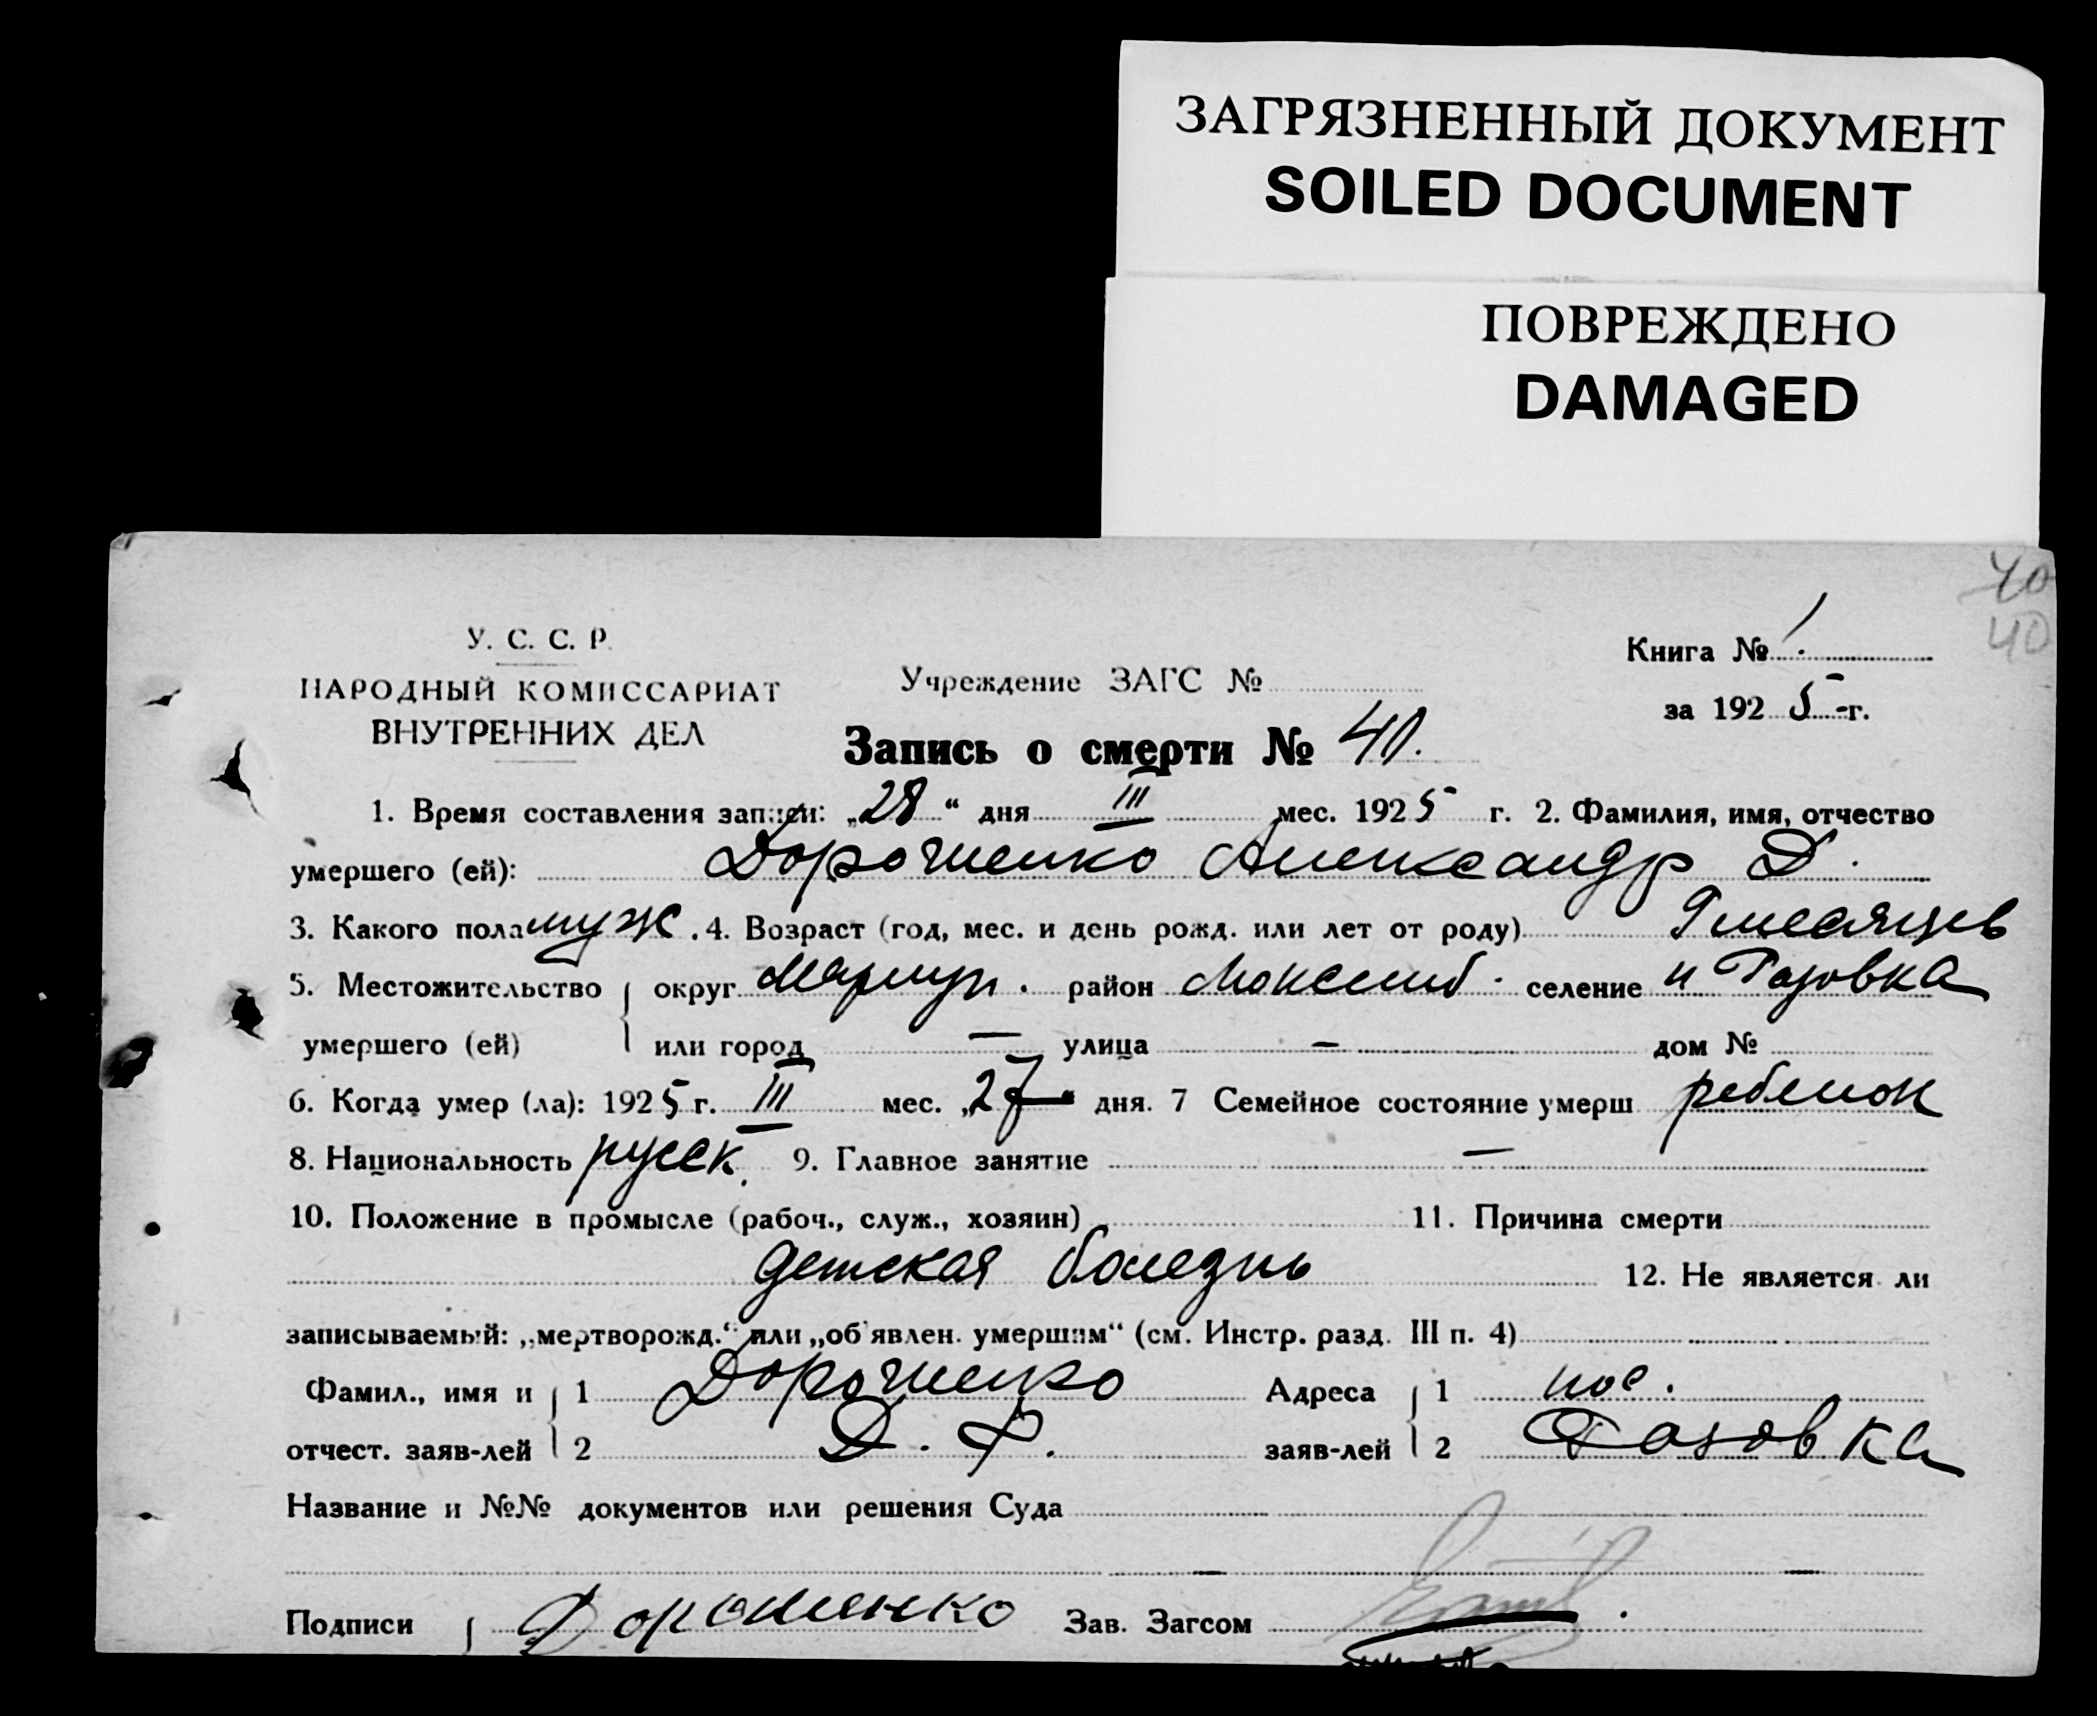 ЗАГРЯЗНЕННЫЙ ДОКУМЕНТ
SOILED DOCUMENT
ПОВРЕЖДЕНО
DAMAGED
40
40
У. С. С. Р.
НАРОДНЫЙ КОМИССАРИАТ
ВНУТРЕННИХ ДЕЛ
Учреждение ЗАГС №
Книга № 1.
за 1925 г.
Запись о смерти № 40.
1. Время составления записи: „28“ дня III мес. 1925 г. 2. Фамилия, имя, отчество
умершего (ей): Дорошенко Александр Д.
3. Какого пола муж. 4. Возраст (год, мес. и день рожд. или лет от роду) 9 месяцев
5. Местожительство { округ Мариуп. район селение Розовка
умершего (ей) или город — улица — дом №
6. Когда умер (ла): 1925 г. III мес. „27“ дня. 7 Семейное состояние умерш ребенок
8. Национальность русск. 9. Главное занятие —
10. Положение в промысле (рабоч., служ., хозяин) 11. Причина смерти
детская болезнь 12. Не является ли
записываемый: „мертворожд.“ или „об'явлен. умершим“ (см. Инстр. разд. III п. 4)
Фамил., имя и { 1 Дорошенко Адреса { 1 пос.
отчест. заяв-лей 2 Д. Ф. заяв-лей 2 Розовка
Название и №№ документов или решения Суда
— —
Подписи { Дорошенко Зав. Загсом